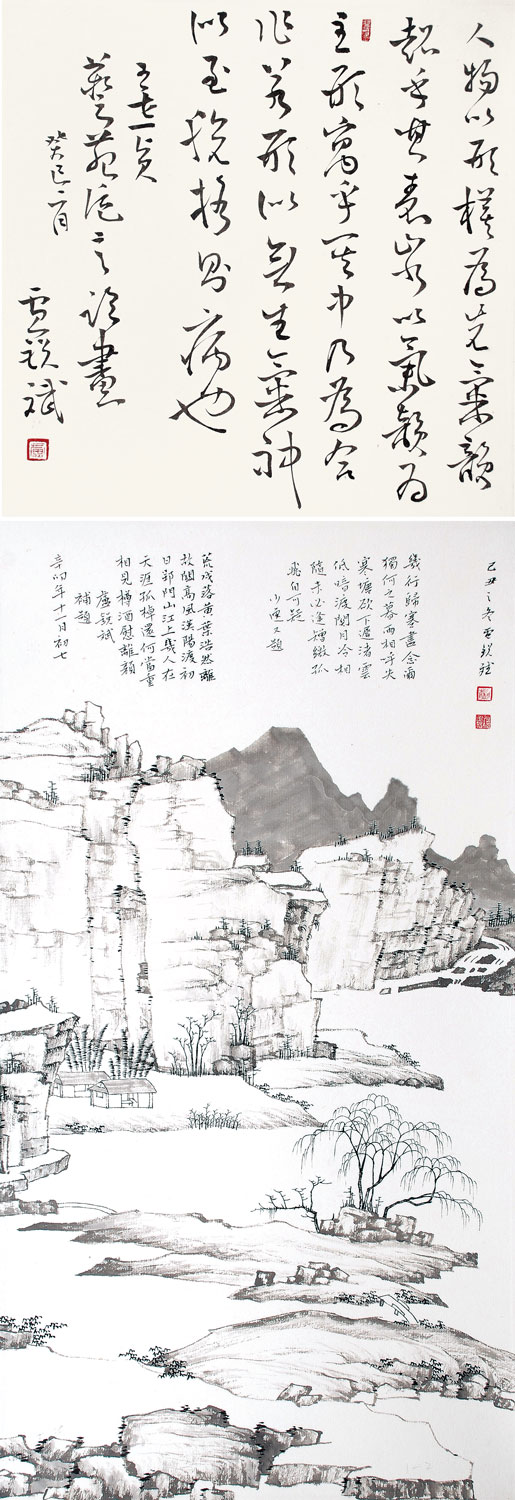 人物以形模為先氣韻
超乎其表山水以氣韻為
主形寓乎其中乃為合
作若形似無生氣神
至脫格則病也
王世貞
藝苑卮言論畫
癸巳二月
盧銳斌
己丑之冬盧銳斌
幾行歸塞盡念爾
獨何之暮雨相呼失
寒塘欲下遲渚雲
低暗渡關月冷相
隨未必逢矰繳孤
飛自可疑
又題
荒戍落黃葉浩然離
故關高風漢陽渡初
日郢門山江上幾人在
天涯孤棹還何當重
相見樽酒慰離顏
盧銳斌
補題
辛卯年十一月初七